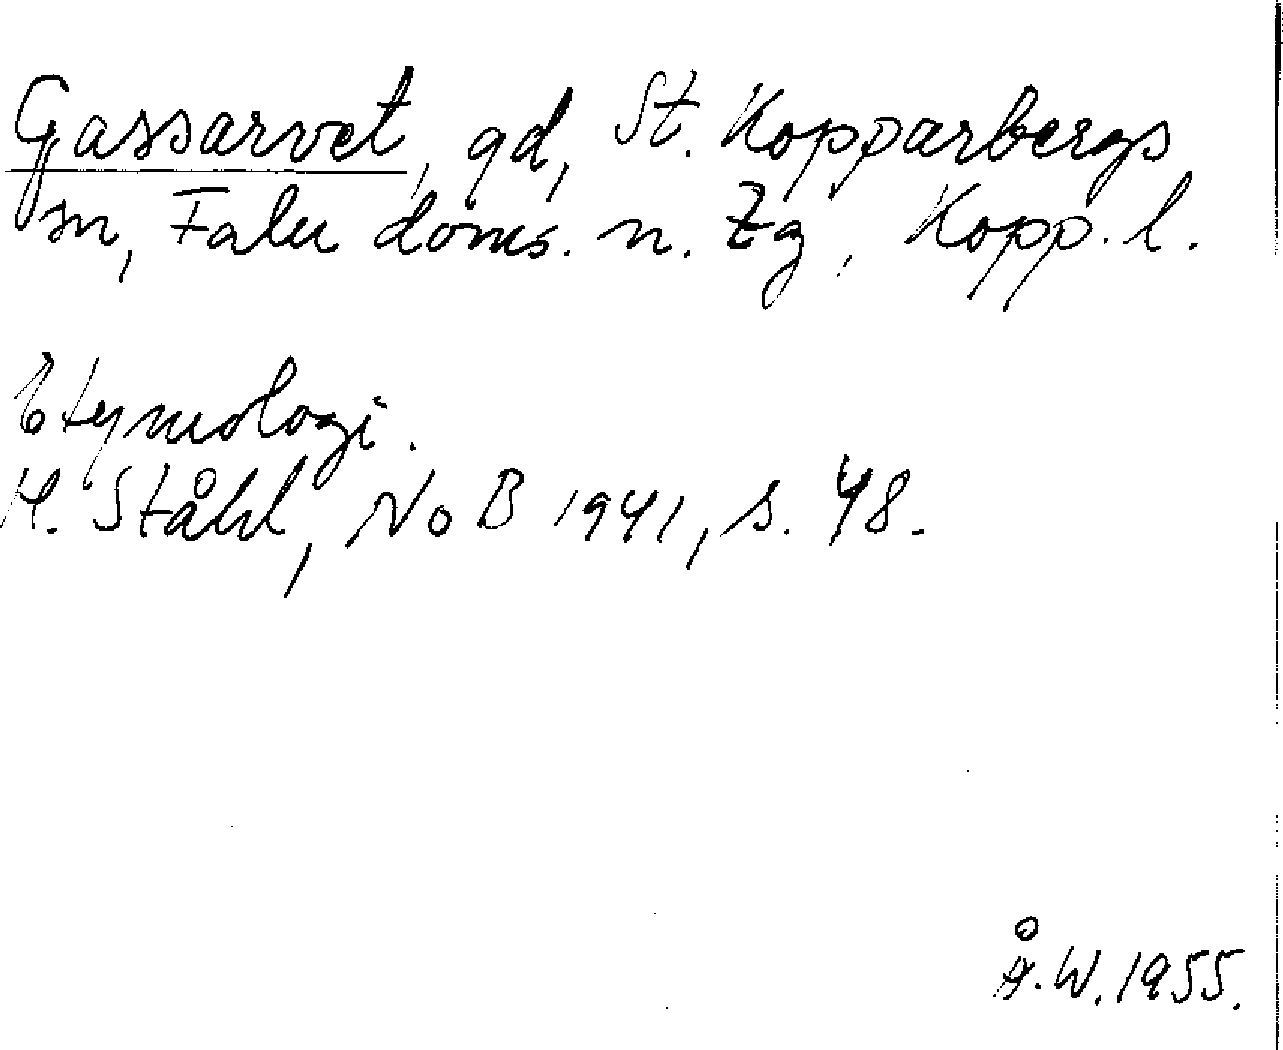 Gassarvet, gd, St. Kopparbergs
sn, Falu doms. n. tg, Kopp. l.
Etymologi.
H. Ståhl, NoB 1941, s. 48.
Å.W. 1955.